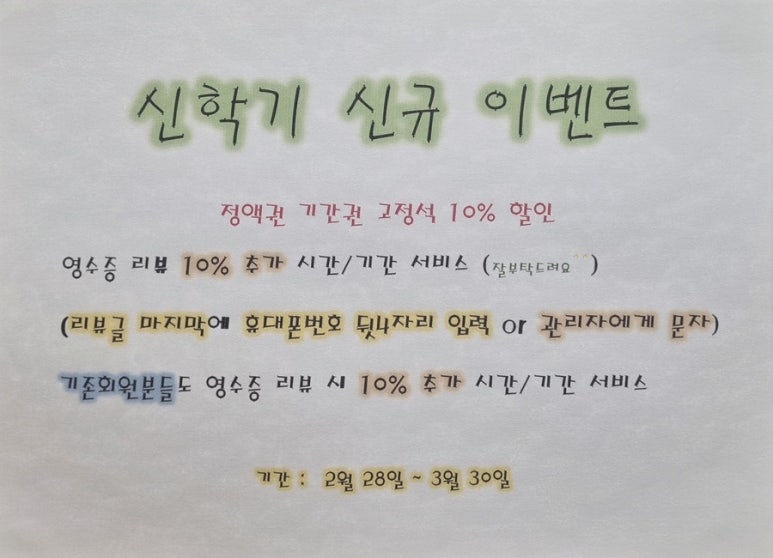 신학기 신규 이벤트
정액권 기간권 고정석 10% 할인
영수증 리뷰 10% 추가 시간/기간 서비스 (잘부탁드려요^^)
(리뷰글 마지막에 휴대폰번호 뒷4자리 입력 or 관리자에게 문자)
기존회원분들도 영수증 리뷰 시 10% 추가 시간/기간 서비스
기간 : 2월 28일 ~ 3월 30일